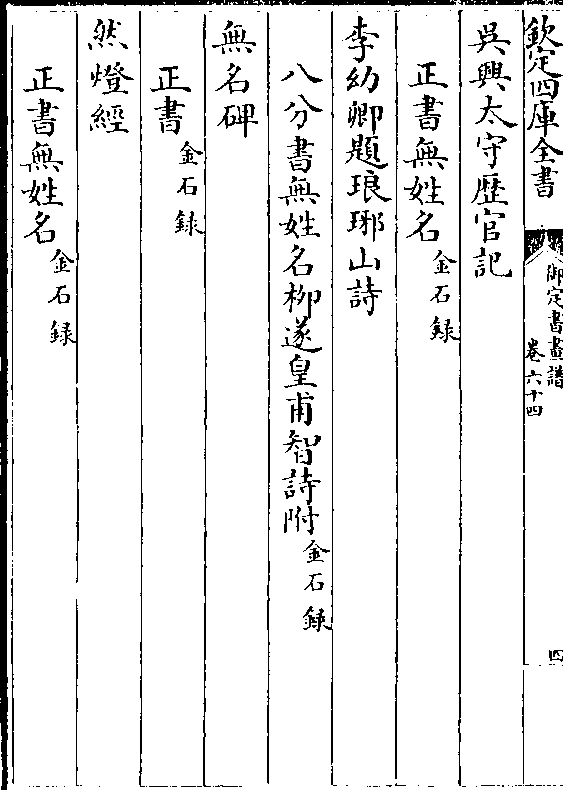 欽定四庫全書
御定書畫譜
卷六十四
四
吳興太守歷官記
正書無姓名金石録
李幼卿題琅琊山詩
八分書無姓名柳遂皇甫智詩附金石録
無名碑
正書金石録
然燈經
正書無姓名金石録